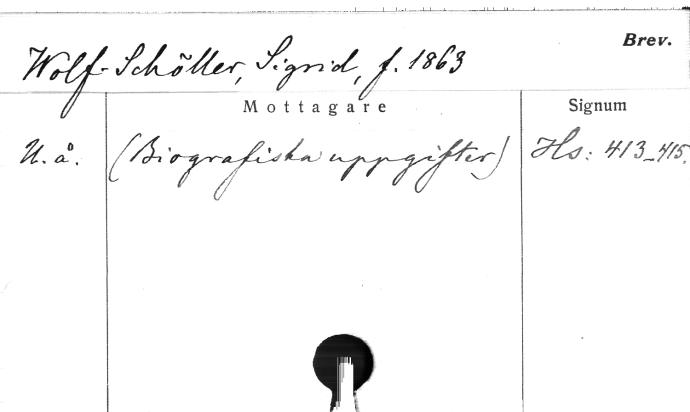 Brev.
Wolf-Schöller, Sigrid, f. 1863
Mottagare Signum
U. å. (Biografiska uppgifter) Hs: 413-415.